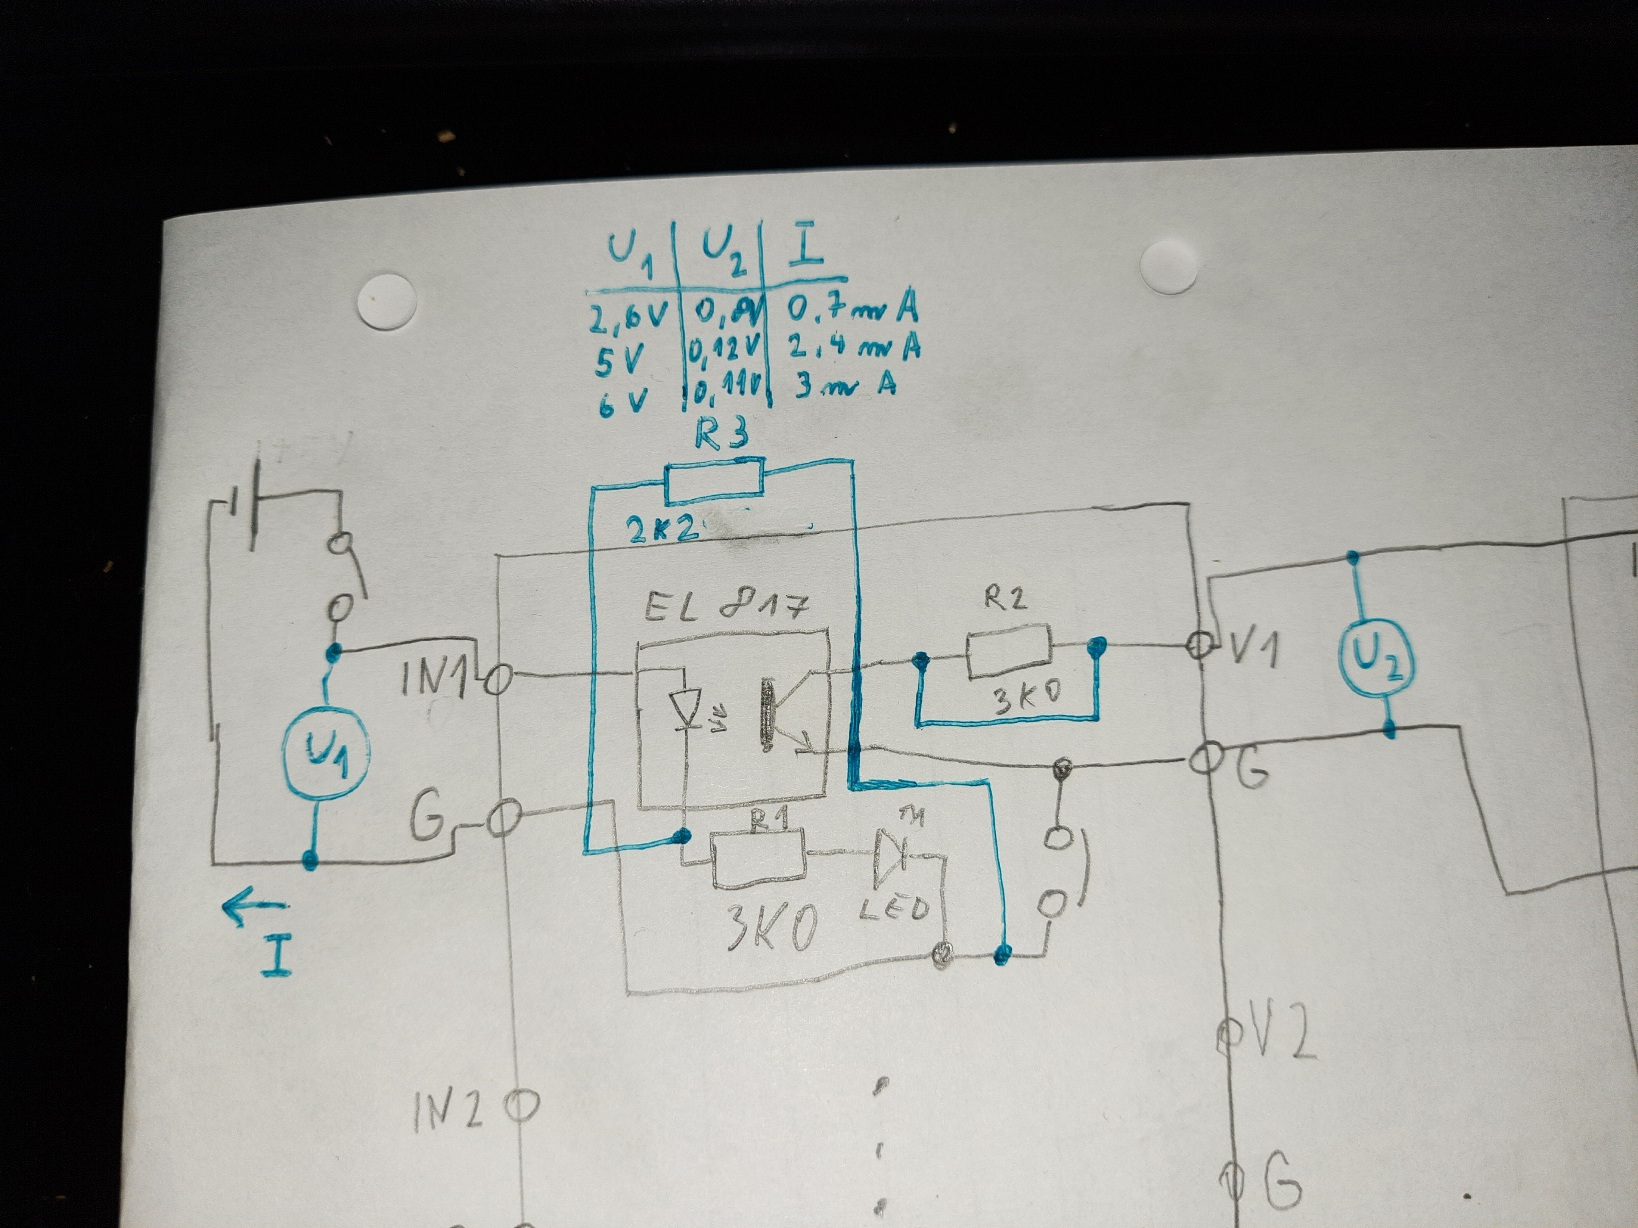 U1 U2 I
2,6V 0,8V 0,7mA
5V 0,12V 2,4mA
6V 0,11V 3mA
R3
2K2
EL 817
R2
IN1
V1
U2
3K0
U1
G
G
R1
LED
3K0
I
V2
IN2
G